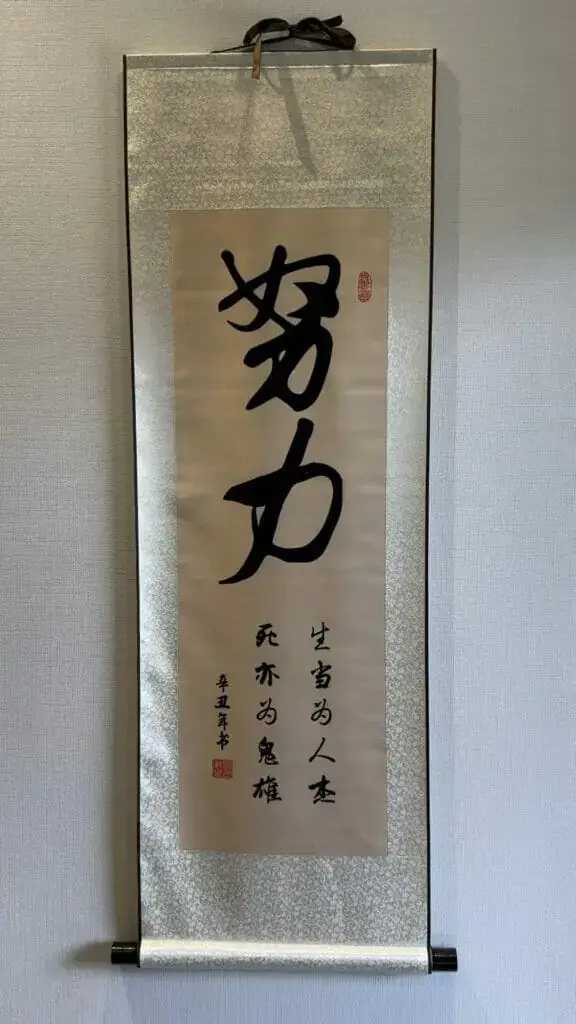 努力
生当为人杰
死亦为鬼雄
辛丑年书